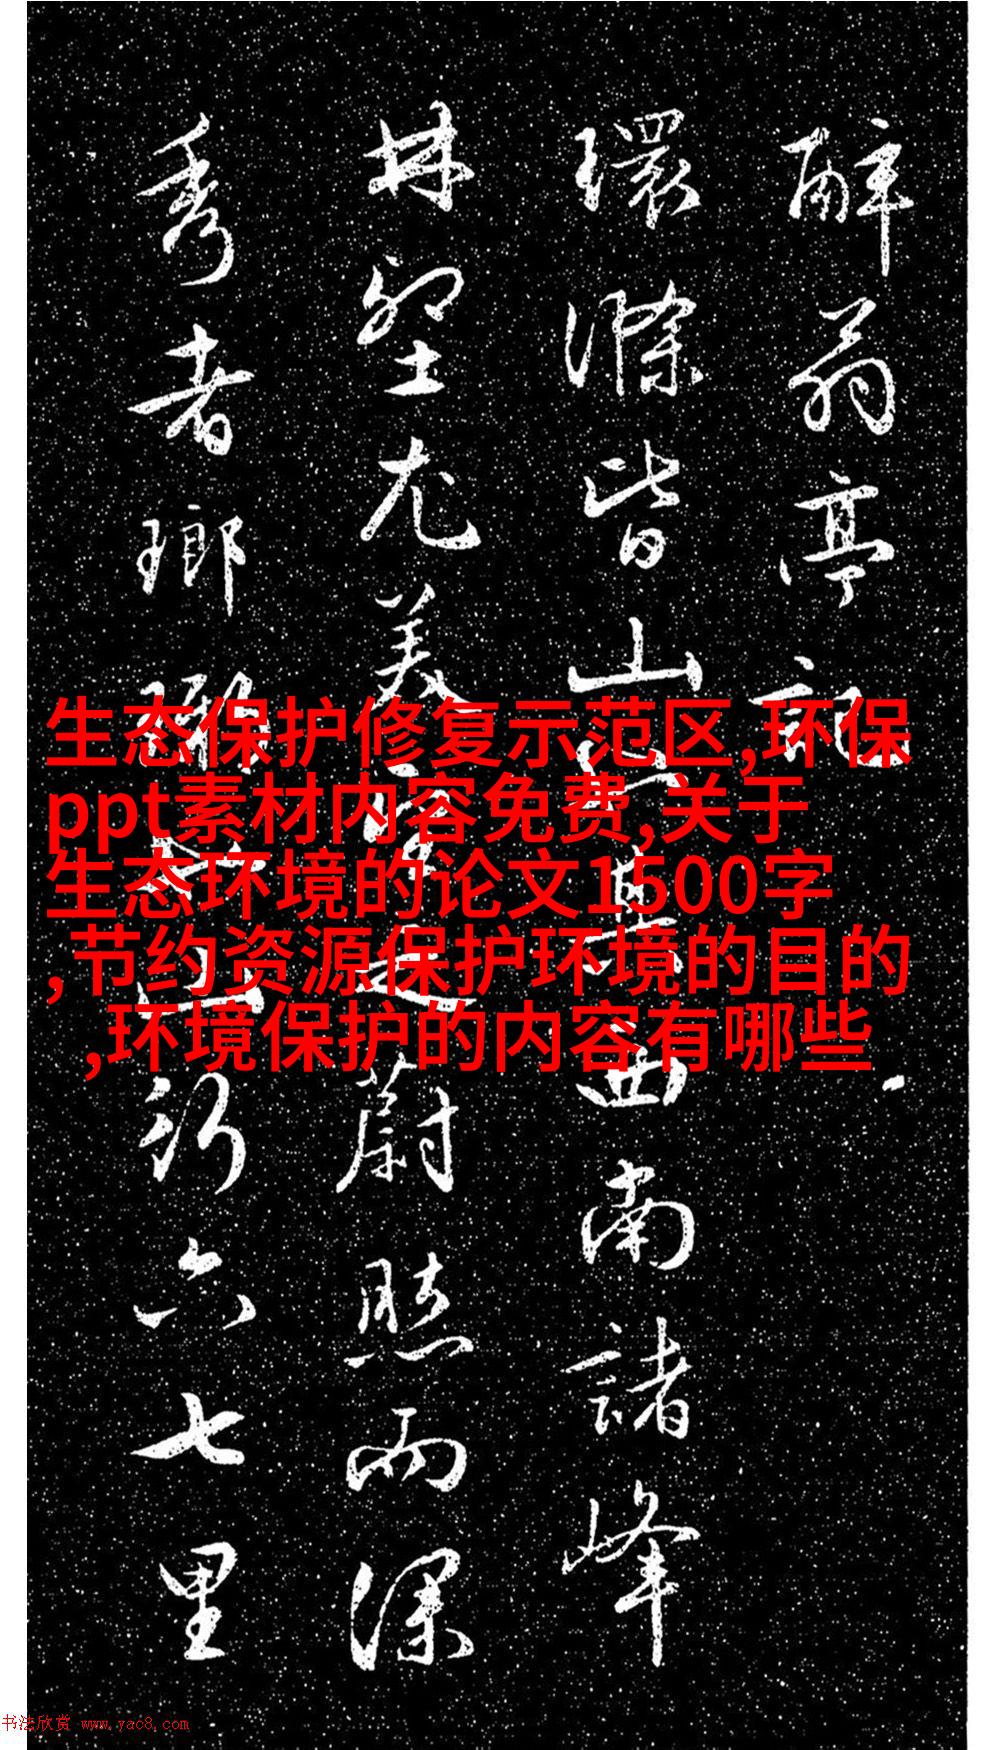 醉翁亭記
環滁皆山也其西南諸峰
林壑尤美望之蔚然而深
秀者瑯琊也山行六七里
生态保护修复示范区,环保
ppt素材内容免费,关于
生态环境的论文1500字
,节约资源保护环境的目的
,环境保护的内容有哪些
书法欣赏 www.yac8.com